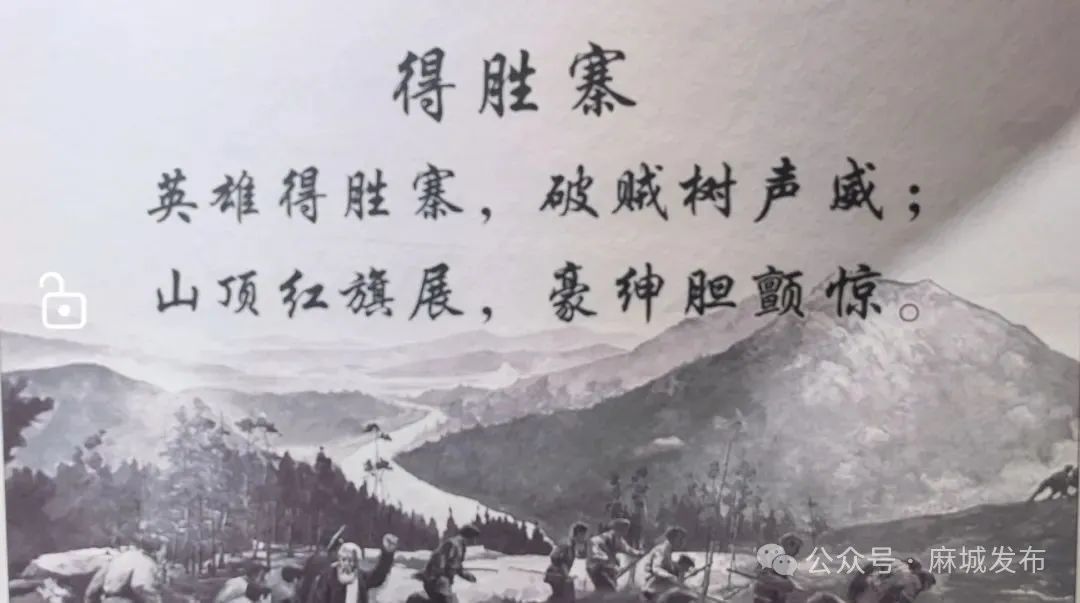 得胜寨
英雄得胜寨，破贼树声威；
山顶红旗展，豪绅胆颤惊。
公众号·麻城发布